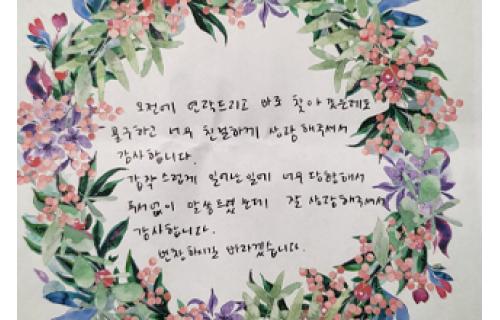 오전에 연락드리고 바로 찾아 갔는데도
불구하고 너무 친절하게 상담 해주셔서
감사합니다.
갑작스럽게 일어난 일에 너무 당황해서
두서없이 말씀드렸는데 잘 상담해주셔서
감사합니다.
번창하시길 바라겠습니다.